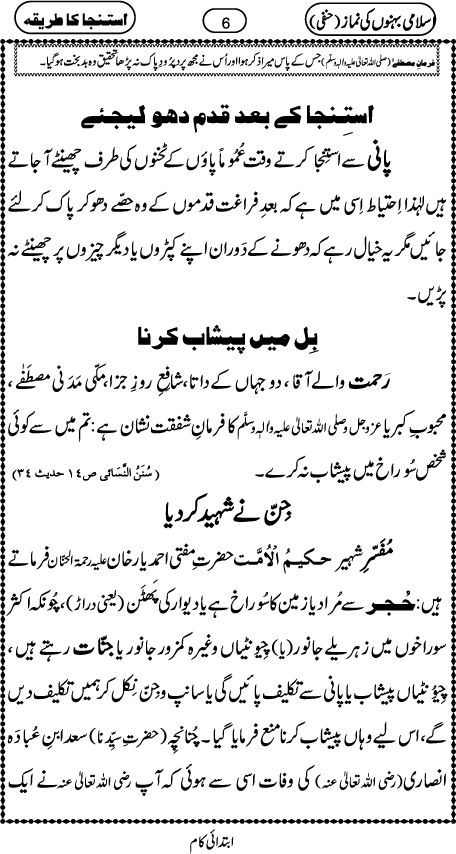 اسلامی بہنوں کی نماز (حنفی) 6 استنجا کا طریقہ
فرمانِ مصطفےٰ (صلی اللہ تعالیٰ علیہ والہٖ وسلّم) جس کے پاس میرا ذکر ہوا اور اُس نے مجھ پر دُرُودِ پاک نہ پڑھا تحقیق وہ بد بخت ہوگیا۔
استنجا کے بعد قدم دھو لیجئے
پانی سے استنجا کرتے وقت عُمُوماً پاؤں کے ٹخنوں کی طرف چھینٹے آجاتے
ہیں لہٰذا اِحتیاط اِسی میں ہے کہ بعدِ فراغت قدموں کے وہ حصّے دھو کر پاک کر لئے
جائیں مگر یہ خیال رہے کہ دھونے کے دَوران اپنے کپڑوں یا دیگر چیزوں پر چھینٹے نہ
پڑیں۔
بِل میں پیشاب کرنا
رَحمت والے آقا، دو جہاں کے داتا، شافعِ روزِ جزا، مکّی مَدَنی مصطَفےٰ،
محبوبِ کبریا عزوجل وصلی اللہ تعالیٰ علیہ والہٖ وسلّم کا فرمانِ شفقت نشان ہے: تم میں سے کوئی
شخص سُوراخ میں پیشاب نہ کرے۔ (سُنَنُ النَّسائی ص ١٤ حدیث ٣٤)
جِنّ نے شہید کر دیا
مُفَسِّرِ شہیر حکیمُ الْاُمَّت حضرتِ مفتی احمد یار خان علیہ رحمۃ الحنّان فرماتے
ہیں: حُجر سے مُراد یا زمین کا سُوراخ ہے یا دیوار کی پھٹَن (یعنی دراڑ)، چُونکہ اکثر
سوراخوں میں زہریلے جانور (یا) چِیونٹیاں وغیرہ کمزور جانور یا جنّات رہتے ہیں،
چِیونٹیاں پیشاب یا پانی سے تکلیف پائیں گی یا سانپ و جِنّ نِکل کر ہمیں تکلیف دیں
گے، اس لیے وہاں پیشاب کرنا منع فرمایا گیا۔ چُنانچِہ (حضرتِ سیِّدنا) سعد ابنِ عُبادہ
انصاری (رضی اللہ تعالیٰ عنہ) کی وفات اسی سے ہوئی کہ آپ رضی اللہ تعالیٰ عنہ نے ایک
ابتدائی کام